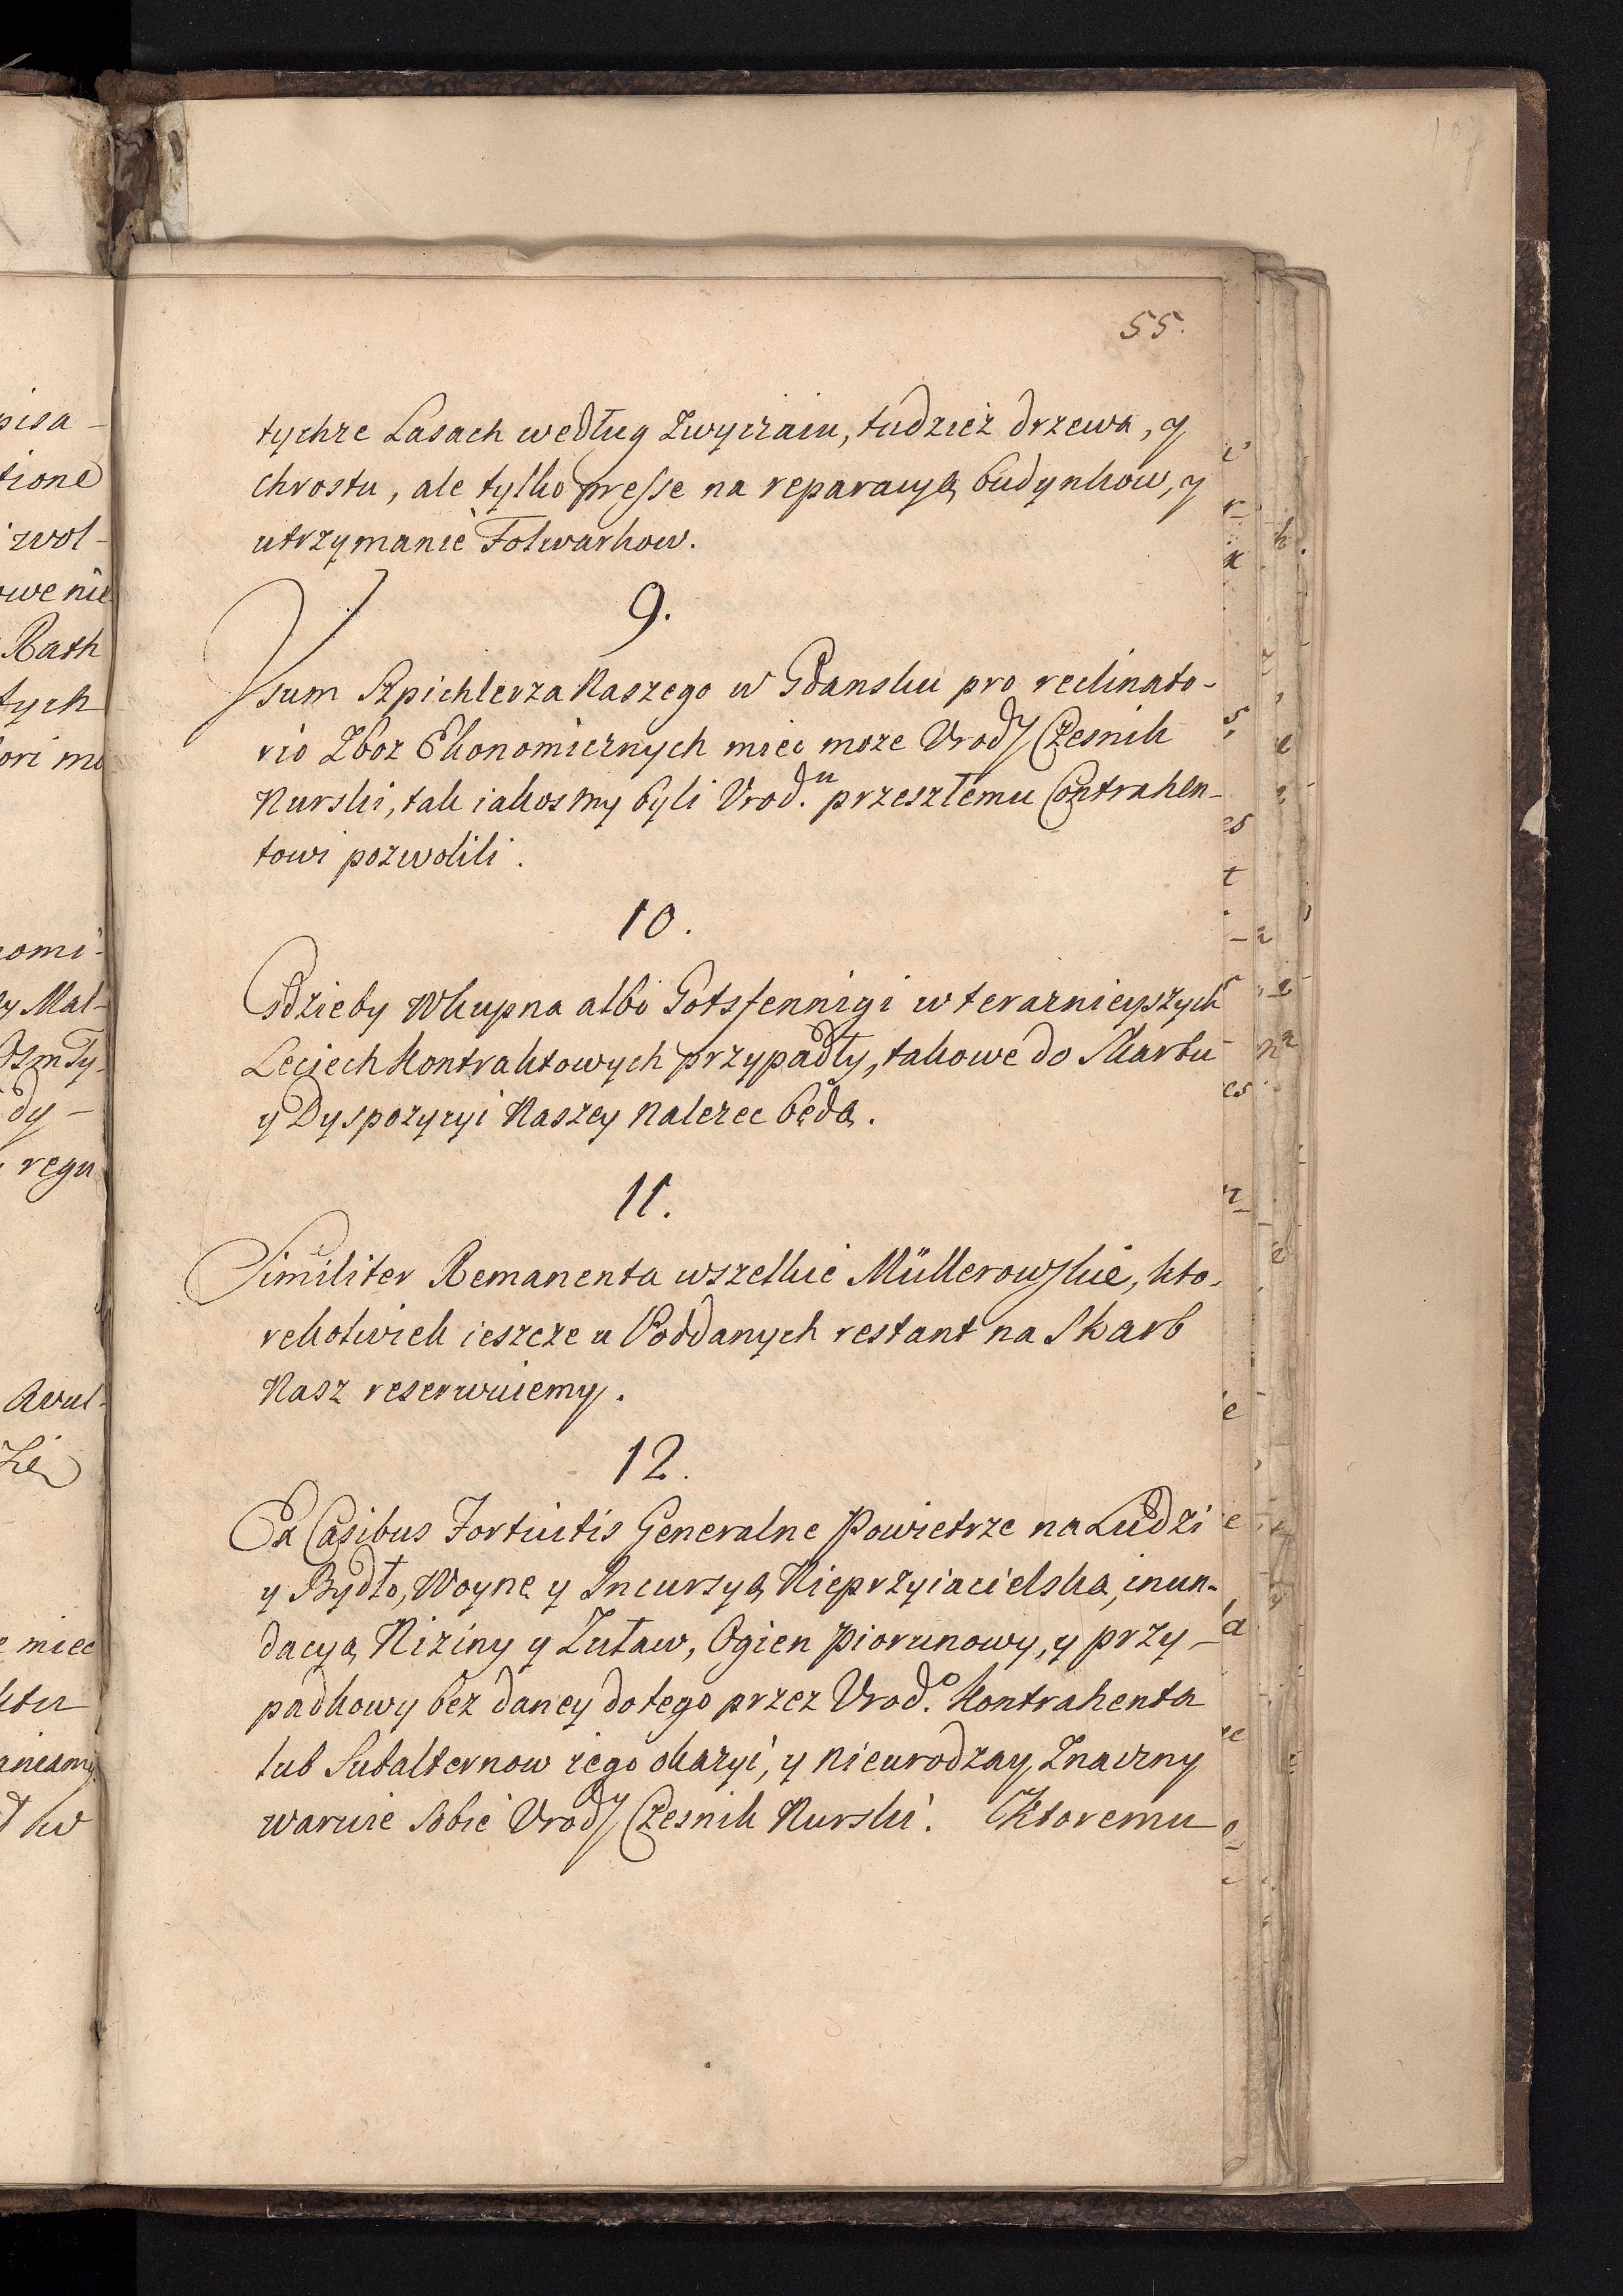 107
55.
tychze Lasach według Zwyczaiu, tudziez drzewa, y
chrostu, ale tylko presse na reparacyą budynkow, y
utrzymanie Folwarkow.
9.
Vsum Szpichlerza Naszego w Gdansku pro reclinato-
rio Zboz Ekonomicznych miec moze Vrody Czesnik
Nurski, tak iakosmy byli Vrod.u przeszłemu Contrahen-
towi pozwolili.
10.
Gdzieby Wkupna albo Gotsfennigi w teraznieyszych
Leciech Kontraktowych przypadły, takowe do Skarbu
y Dyspozycyi Naszey nalezec będą.
11.
Similiter Remanenta wszelkie Müllerowskie, kto-
rekolwiek ieszcze u Poddanych restant na Skarb
Nasz reserwuiemy.
12.
Ex Casibus Fortuitis Generalne Powietrze na Ludzi
y Bydło, Woynę y Incursyą Nieprzyiacielską, inun-
dacyą Niziny y Zuław, Ogien Piorunowy, y przy-
padkowy bez daney do tego przez Vrod.o Kontrahenta
lub Subalternow iego okazyi, y nieurodzay Znaczny
waruie sobie Vrody Czesnik Nurski. Ktoremu